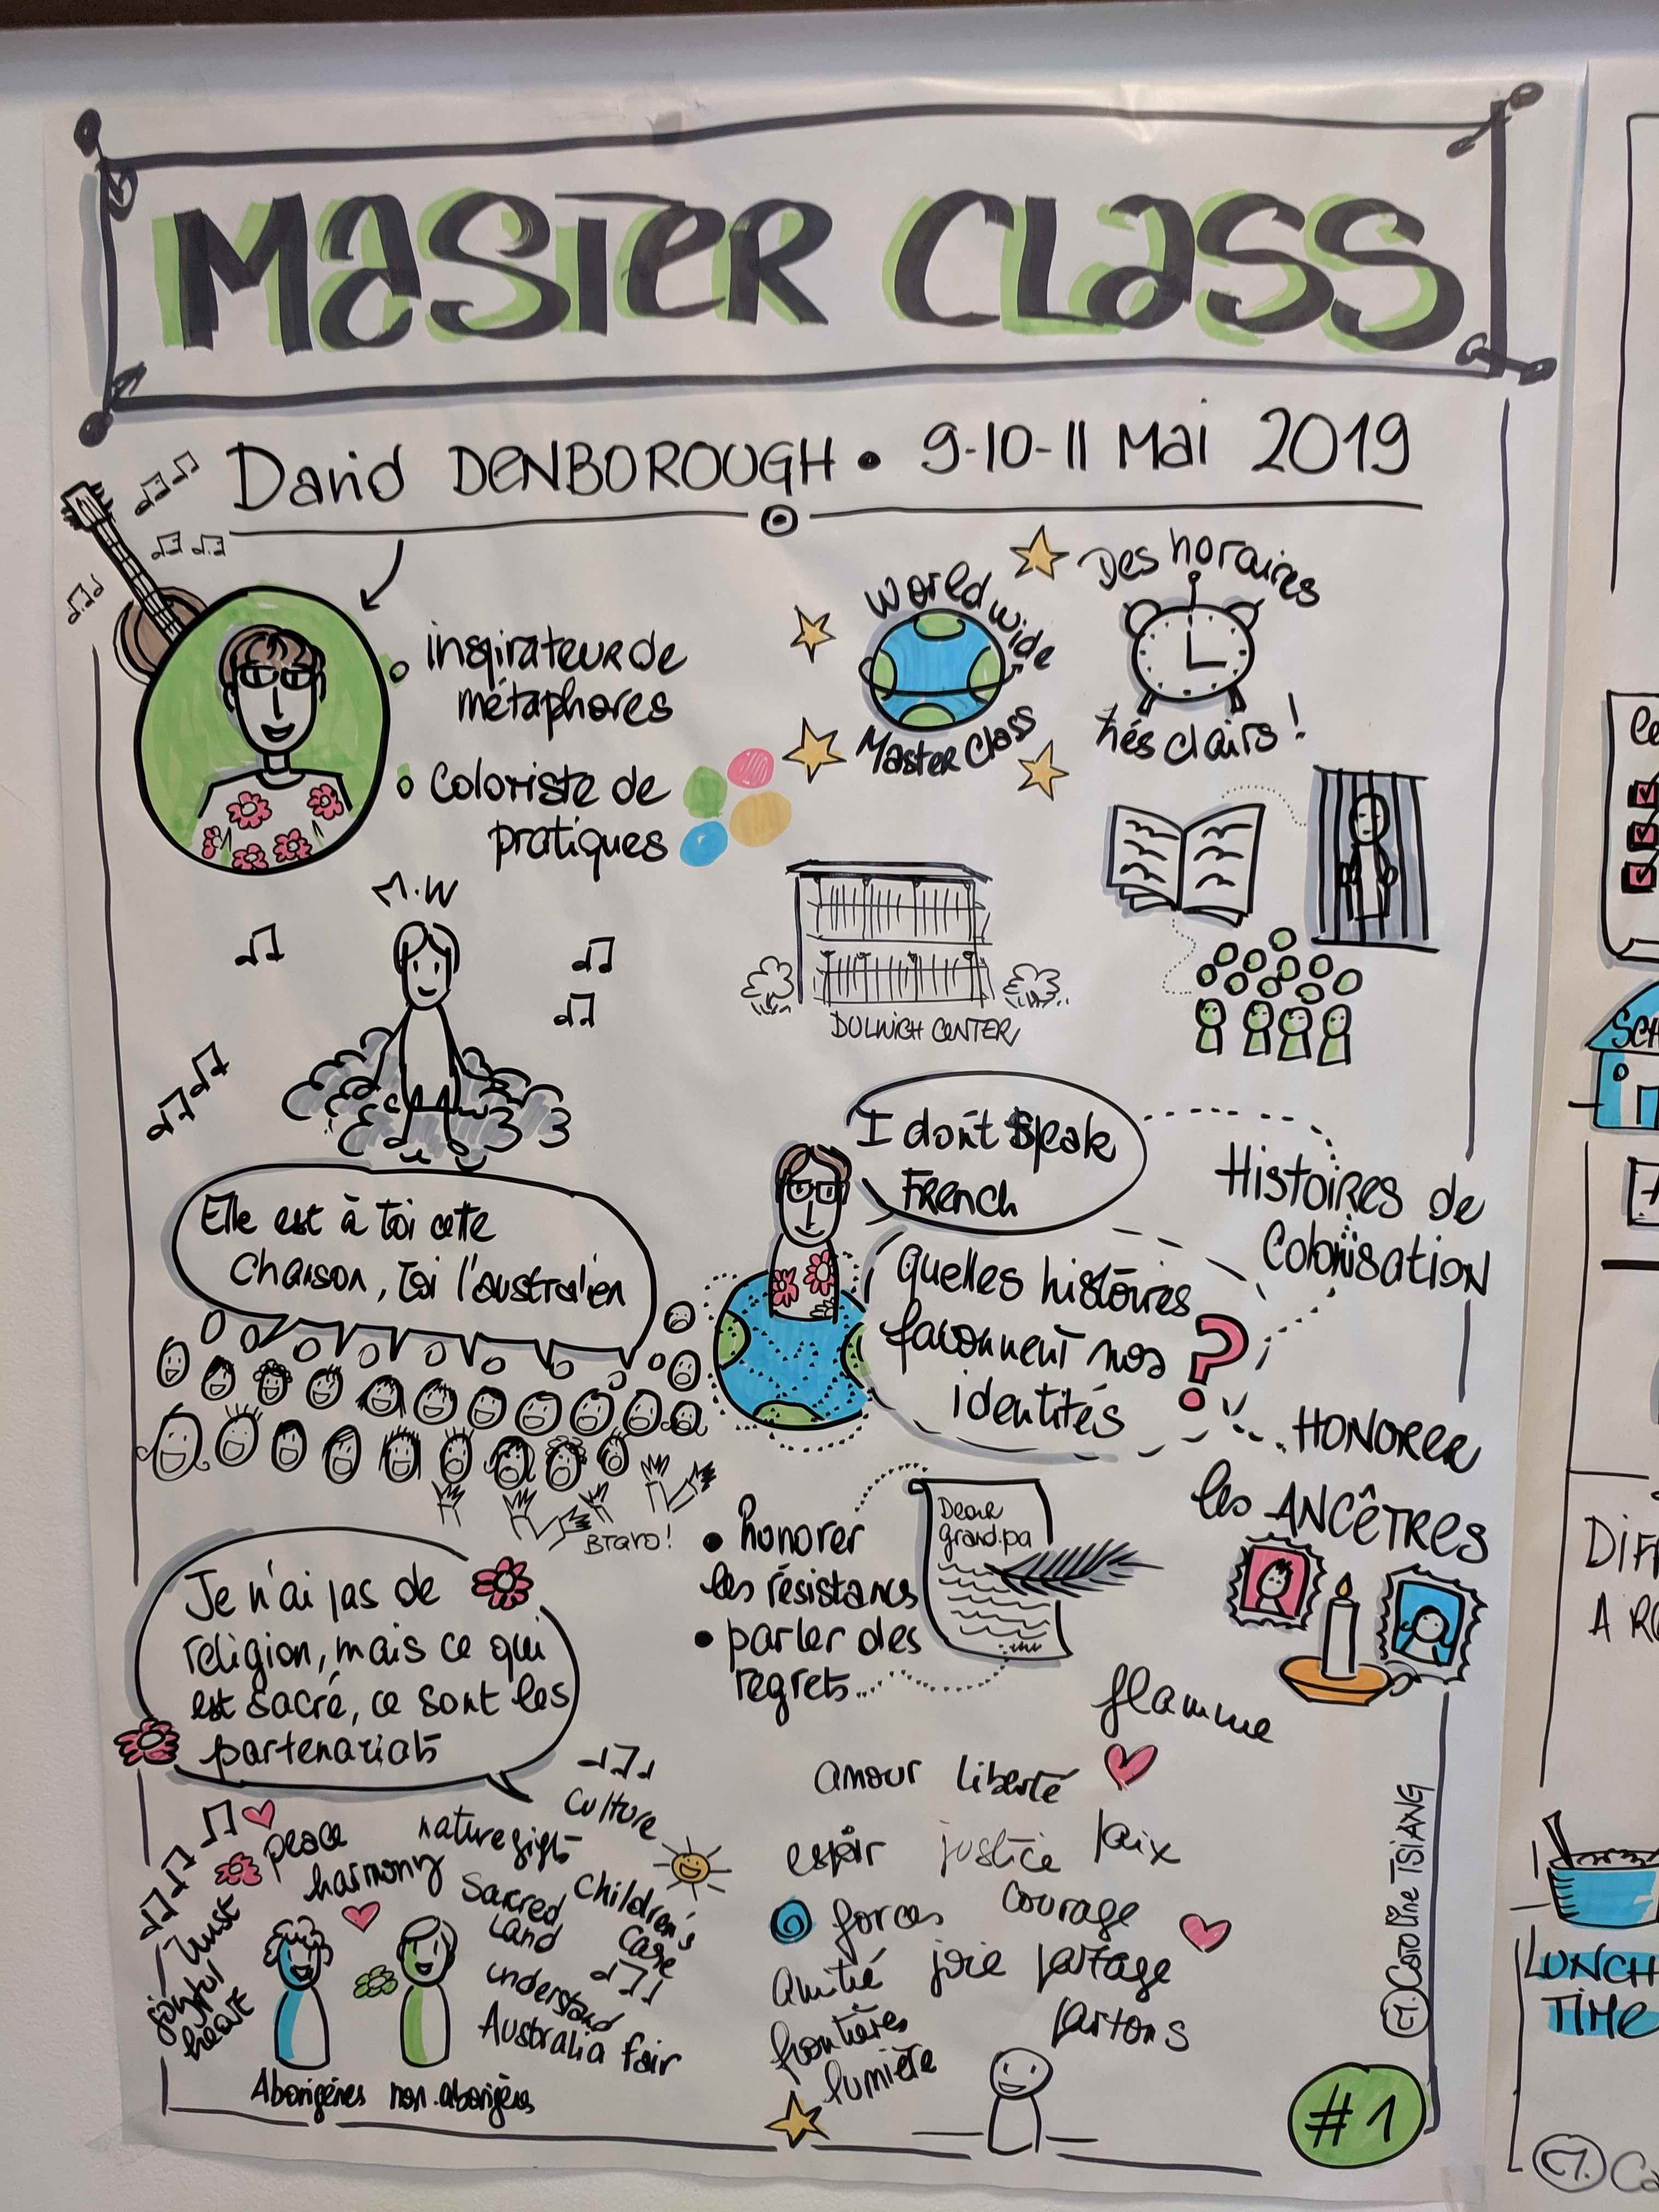 MASTER CLASS
David DENBOROUGH • 9-10-11 Mai 2019
inspirateur de
métaphores
Coloriste de
pratiques
World Wide
Master Class
Des horaires
très clairs !
M.W
DULWICH CENTER
I don't speak
French
Histoires de
Colonisation
Elle est à toi cette
chanson, toi l'australien
quelles histoires
façonnent nos
identités
?
HONORER
les ANCÊTRES
BRAVO !
• honorer
les résistances
• parler des
regrets...
Dear
grand.pa
Je n'ai pas de
religion, mais ce qui
est sacré, ce sont les
partenariats
flamme
amour liberté
espoir justice paix
forces courage
amitié joie partage
frontières partons
lumière
culture
peace
nature gifts
harmony
Sacred
Land
Children's
Care
trust
joyful
heart
understand
Australia fair
Aborigènes non-aborigènes
Coroline TSIANG
#1
SCH
DIFF
A RO
LUNCH
TIME